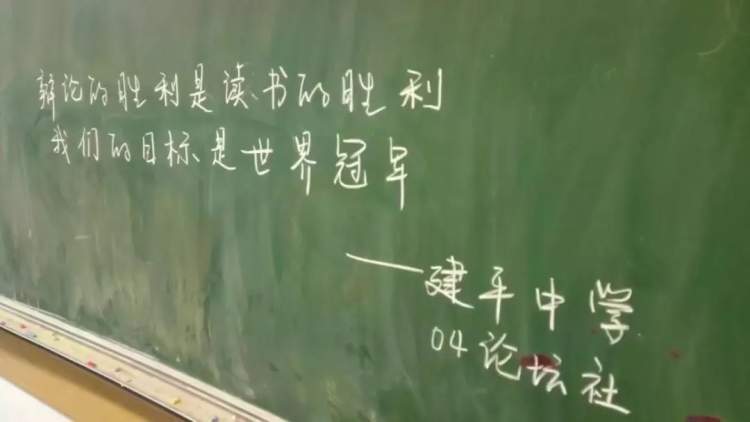 辩论的胜利是读书的胜利
我们的目标是世界冠军
——建平中学
04论坛社